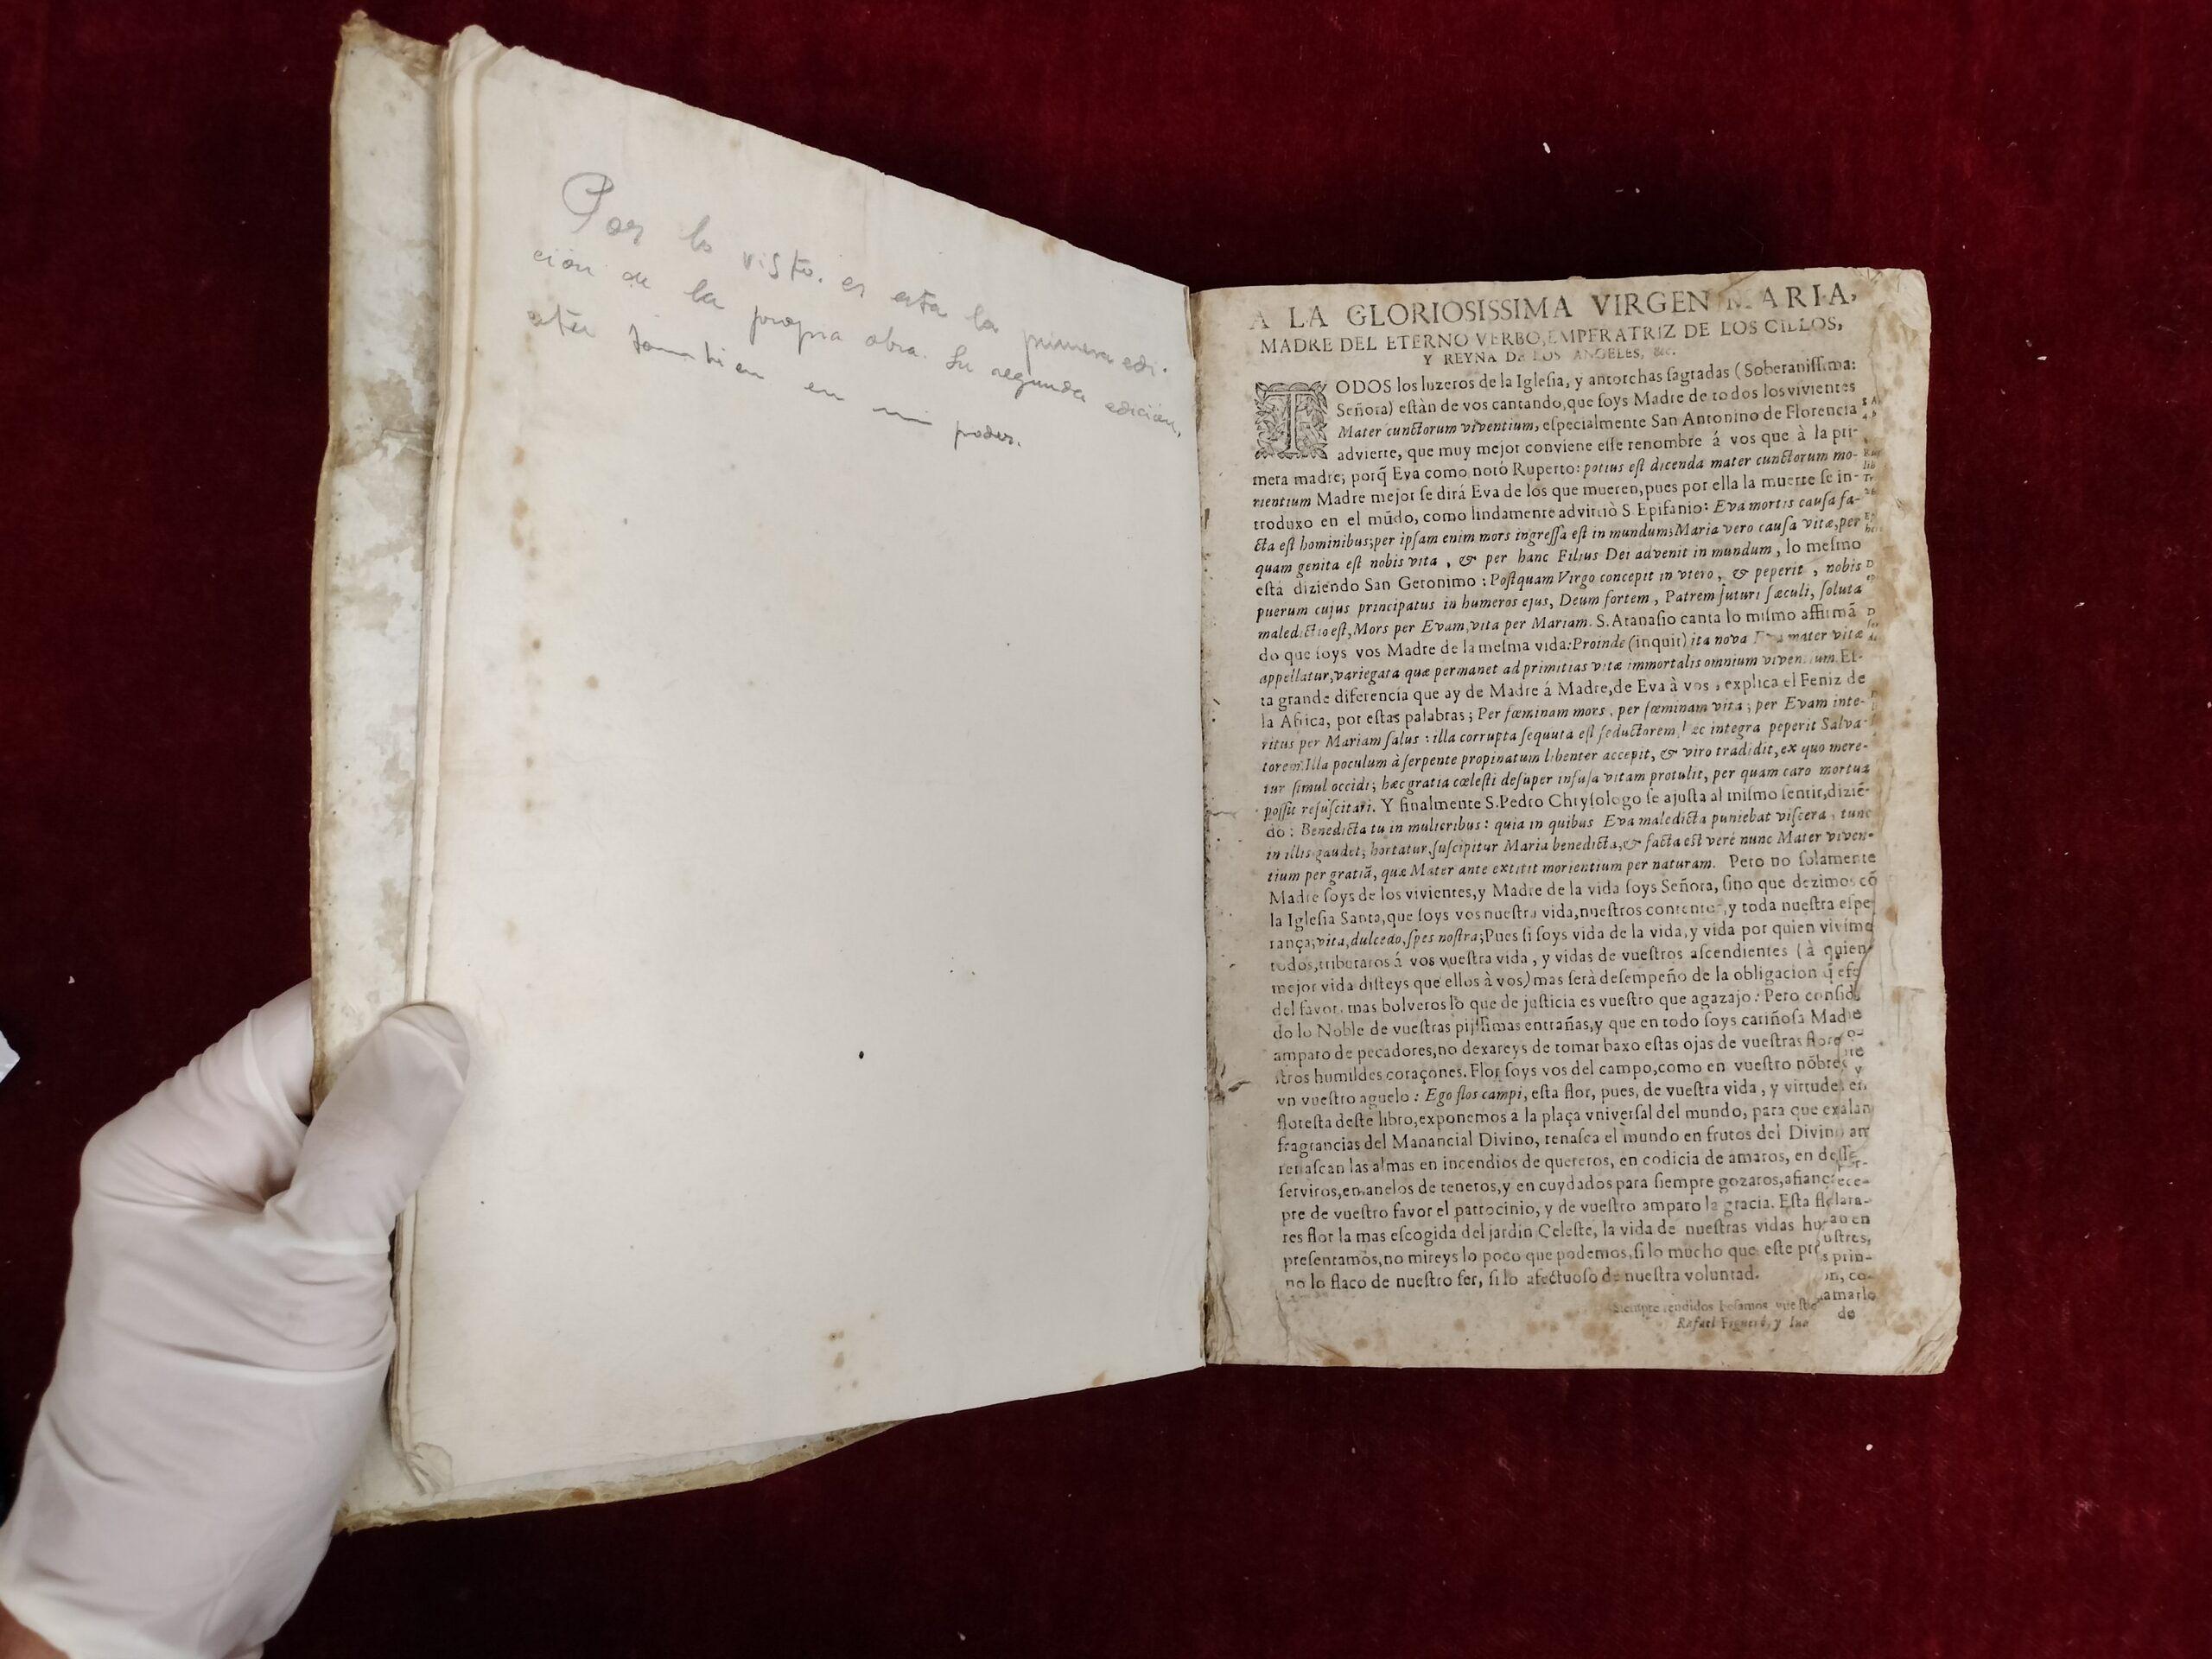 Por lo visto. es esta la primera edi-
ción de la propia obra. Su segunda edición,
está tambien en mi poder.
A LA GLORIOSISSIMA VIRGEN MARIA,
MADRE DEL ETERNO VERBO, EMPERATRIZ DE LOS CILLOS,
Y REYNA DE LOS ANGELES, &c.
TODOS los luzeros de la Iglesia, y antorchas sagradas (Soberanissima:
Señora) estàn de vos cantando, que soys Madre de todos los vivientes
Mater cunctorum viventium, especialmente San Antonino de Florencia
advierte, que muy mejor conviene esse renombre á vos que à la pri-
mera madre; porq̃ Eva como notò Ruperto: potius est dicenda mater cunctorum mo-
rientium Madre mejor se dirá Eva de los que mueren, pues por ella la muerte se in-
troduxo en el mũdo, como lindamente advirtiò S. Epifanio: Eva mortis causa fa-
cta est hominibus; per ipsam enim mors ingressa est in mundum; Maria vero causa vitæ, per
quam genita est nobis vita, & per hanc Filius Dei advenit in mundum, lo mesmo
está diziendo San Geronimo: Postquam Virgo concepit in vtero, & peperit, nobis
puerum cujus principatus in humeros ejus, Deum fortem, Patrem futuri sæculi, soluta
maledictio est, Mors per Evam, vita per Mariam. S. Atanasio canta lo mismo affirmã
do que soys vos Madre de la mesma vida: Proinde (inquit) ita nova Eva mater vitæ
appellatur, variegata quæ permanet ad primitias vitæ immortalis omnium viventium. Es-
ta grande diferencia que ay de Madre á Madre, de Eva à vos, explica el Feniz de
la Africa, por estas palabras; Per fœminam mors, per fœminam vita; per Evam inte-
ritus per Mariam salus: illa corrupta sequuta est seductorem, hæc integra peperit Salva-
torem: Illa poculum à serpente propinatum libenter accepit, & viro tradidit, ex quo mere-
tur simul occidi; hæc gratia cœlesti desuper infusa vitam protulit, per quam caro mortua
possit resuscitari. Y finalmente S. Pedro Chrysologo se ajusta al mismo sentir, diziẽ-
do: Benedicta tu in mulieribus: quia in quibus Eva maledicta puniebat viscera, tunc
in illis gaudet; hortatur, suscipitur Maria benedicta, & facta est verè nunc Mater viven-
tium per gratiã, quæ Mater ante extitit morientium per naturam. Pero no solamente
Madre soys de los vivientes, y Madre de la vida soys Señora, sino que dezimos cõ
la Iglesia Santa, que soys vos nuestra vida, nuestros contentos, y toda nuestra espe
rança; vita, dulcedo, spes nostra; Pues si soys vida de la vida, y vida por quien vivimo
todos, tributaros á vos vuestra vida, y vidas de vuestros ascendientes (à quien
mejor vida disteys que ellos à vos) mas serà desempeño de la obligacion q̃
del favor, mas bolveros lo que de justicia es vuestro que agazajo: Pero consid
do lo Noble de vuestras pijssimas entrañas, y que en todo soys cariñosa Madre
amparo de pecadores, no dexareys de tomar baxo estas ojas de vuestras flore
stros humildes coraçones. Flor soys vos del campo, como en vuestro nõbre
vn vuestro aguelo: Ego flos campi, esta flor, pues, de vuestra vida, y virtudes en
floresta deste libro, exponemos à la plaça vniversal del mundo, para que exalan
fragrancias del Manancial Divino, renasca el mundo en frutos del Divino am
renascan las almas en incendios de quereros, en codicia de amaros, en desse
serviros, en anelos de teneros, y en cuydados para siempre gozaros, afianç
pre de vuestro favor el patrocinio, y de vuestro amparo la gracia. Esta
res flor la mas escogida del jardin Celeste, la vida de nuestras vidas hu
presentamos, no mireys lo poco que podemos, si lo mucho que este
no lo flaco de nuestro ser, si lo afectuoso de nuestra voluntad.
Siempre rendidos besamos vuestro
Rafael Figueró, y Iua